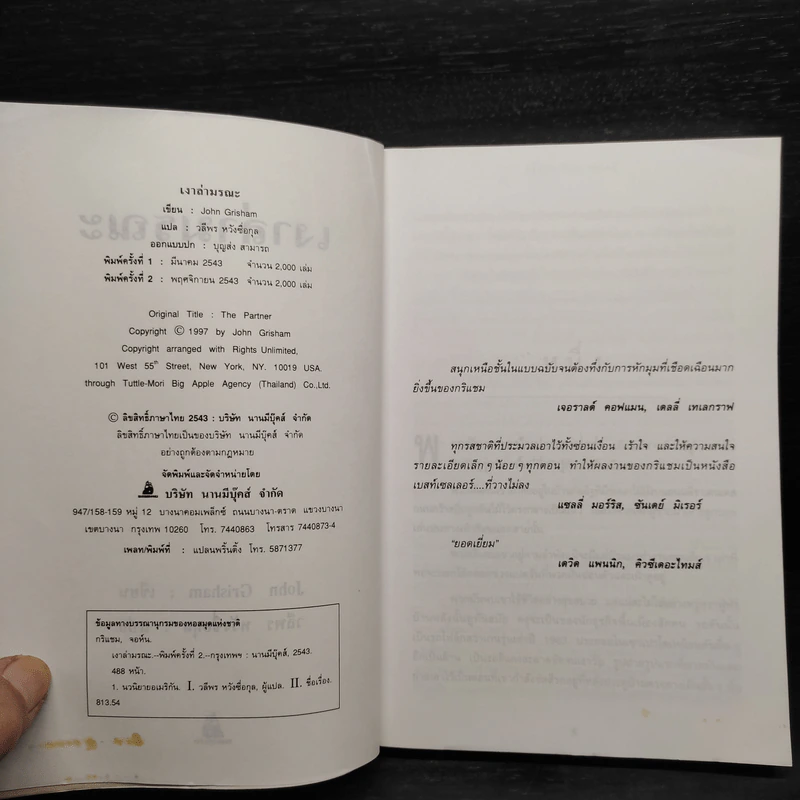 เงาล่ามรณะ
เขียน : John Grisham
แปล : วลีพร หวังซื่อกุล
ออกแบบปก : บุญส่ง สามารถ
พิมพ์ครั้งที่ 1 : มีนาคม 2543 จำนวน 2,000 เล่ม
พิมพ์ครั้งที่ 2 : พฤศจิกายน 2543 จำนวน 2,000 เล่ม
Original Title : The Partner
Copyright © 1997 by John Grisham
Copyright arranged with Rights Unlimited,
101 West 55th Street, New York, NY. 10019 USA.
through Tuttle-Mori Big Apple Agency (Thailand) Co.,Ltd.
© ลิขสิทธิ์ภาษาไทย 2543 : บริษัท นานมีบุ๊คส์ จำกัด
ลิขสิทธิ์ภาษาไทยเป็นของบริษัท นานมีบุ๊คส์ จำกัด
อย่างถูกต้องตามกฎหมาย
จัดพิมพ์และจัดจำหน่ายโดย
บริษัท นานมีบุ๊คส์ จำกัด
947/158-159 หมู่ 12 บางนาคอมเพล็กซ์ ถนนบางนา-ตราด แขวงบางนา
เขตบางนา กรุงเทพ 10260 โทร. 7440863 โทรสาร 7440873-4
เพลท/พิมพ์ที่ : แปลนพริ้นติ้ง โทร. 5871377
ข้อมูลทางบรรณานุกรมของหอสมุดแห่งชาติ
กริแชม, จอห์น.
เงาล่ามรณะ.--พิมพ์ครั้งที่ 2.--กรุงเทพฯ : นานมีบุ๊คส์, 2543.
488 หน้า.
1. นวนิยายอเมริกัน. I. วลีพร หวังซื่อกุล, ผู้แปล. II. ชื่อเรื่อง.
813.54
สนุกเหนือชั้นในแบบฉบับจนต้องทึ่งกับการหักมุมที่เชือดเฉือนมาก
ยิ่งขึ้นของกริแชม
เจอราลด์ คอฟแมน, เดลลี่ เทเลกราฟ
ทุกรสชาติที่ประมวลเอาไว้ทั้งซ่อนเงื่อน เร้าใจ และให้ความสนใจ
รายละเอียดเล็ก ๆ น้อย ๆ ทุกตอน ทำให้ผลงานของกริแชมเป็นหนังสือ
เบสท์เซลเลอร์....ที่วางไม่ลง
แซลลี่ มอร์ริส, ซันเดย์ มิเรอร์
"ยอดเยี่ยม"
เดวิด แพนนิก, คิวซีเดอะไทมส์